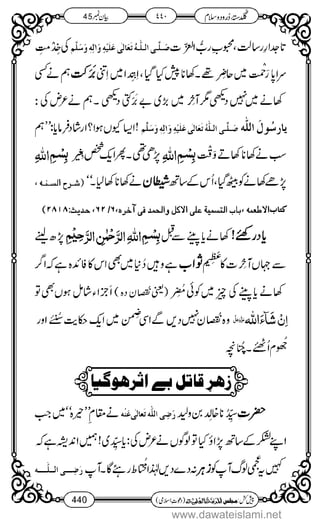 گلدستۂ درود و سلام ٤٤٠ بیان نمبر 45
تاجدارِ رسالت، محبوبِ ربُّ العزت صَلَّی اللہُ تَعَالٰی عَلَیْہِ وَاٰلِہٖ وَسَلَّم کی خدمتِ
سراپا رحمت میں حاضر تھے۔ کھانا پیش کیا گیا، ابتدا میں اتنی برکت ہم نے کسی
کھانے میں نہیں دیکھی مگر آخر میں بڑی بے برکتی دیکھی۔ ہم نے عرض کی:
یارسولَ اللہ صَلَّی اللہُ تَعَالٰی عَلَیْہِ وَاٰلِہٖ وَسَلَّم! ایسا کیوں ہوا؟ ارشاد فرمایا: ’’ہم
سب نے کھانا کھاتے وقت بِسْمِ اللہِ پڑھی تھی۔ پھر ایک شخص بغیر بِسْمِ اللہِ
پڑھے کھانے کو بیٹھ گیا، اُس کے ساتھ شیطان نے کھانا کھا لیا۔‘‘ (شرح السنه،
کتاب الاطعمه، باب التسمیة علی الاکل والحمد فی آخره، ٦/٦٢، حدیث: ٢٨١٨)
یاد رکھئے! کھانے یا پینے سے قبل بِسْمِ اللہِ الرَّحْمٰنِ الرَّحِیْمِ پڑھ لینے
سے جہاں آخرت کا عظیم ثواب ہے وہیں دنیا میں بھی اس کا فائدہ یہ ہے کہ اگر
کھانے یا پینے کی چیز میں کوئی مُضِر (یعنی نقصان دہ) اجزاء شامل ہوں بھی تو
اِنْ شَآءَ اللہ وہ نقصان نہیں دیں گے اسی ضمن میں ایک حکایت سُنئے اور
جھوم اُٹھئے۔ چنانچہ
زہرِ قاتل بے اثر ہوگیا
حضرت سیدنا خالد بن ولید رَضِیَ اللہُ تَعَالٰی عَنْہ نے مقام ’’حیرہ‘‘ میں جب
اپنے لشکر کے ساتھ پڑاؤ کیا تو لوگوں نے عرض کی: یا سیدی! ہمیں اندیشہ ہے کہ
کہیں یہ عجمی لوگ آپ کو زہر نہ دے دیں لہٰذا محتاط رہئے گا۔ آپ رَضِیَ اللہُ
440
www.dawateislami.net